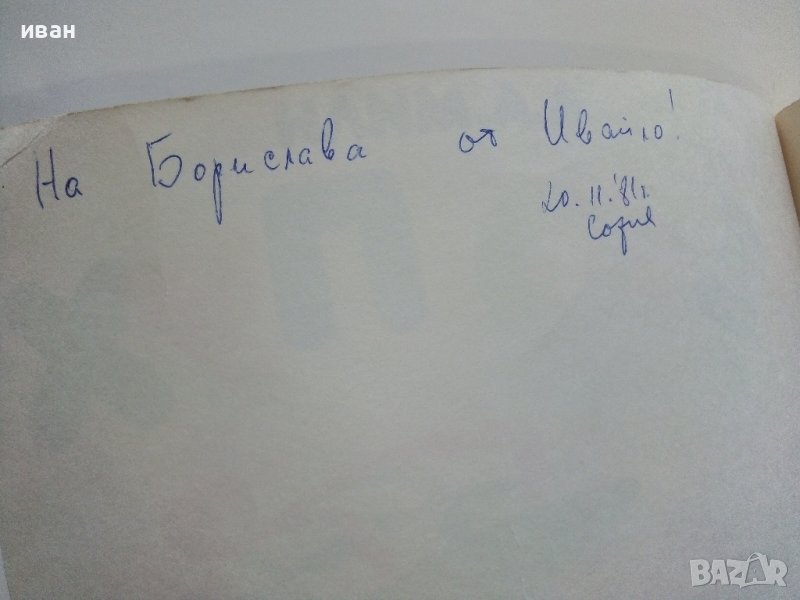 иван
На Борислава от Ивайло!
20. 11. '81г.
София
BAZAR